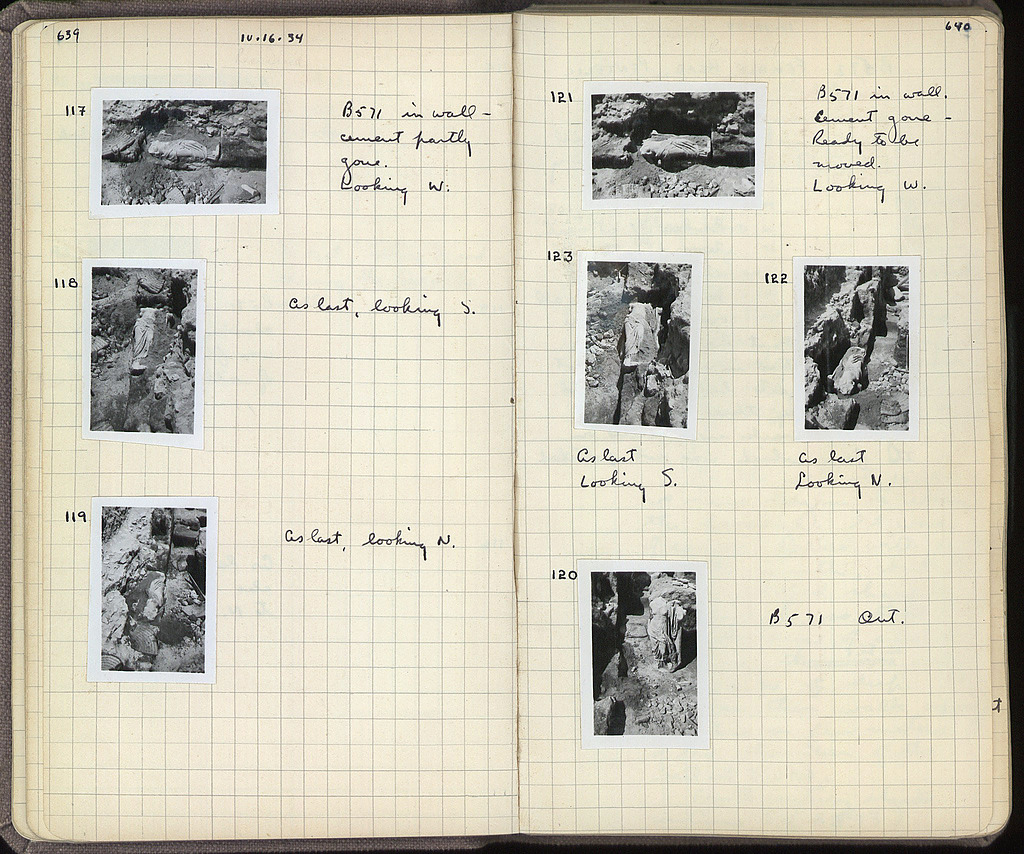 639
10.16.34
117
B571 in wall -
cement partly
gone.
Looking W.
118
As last, looking S.
119
As last, looking N.
640
121
B571 in wall.
Cement gone -
Ready to be
moved.
Looking W.
123
As last
Looking S.
122
As last
Looking N.
120
B571 Out.